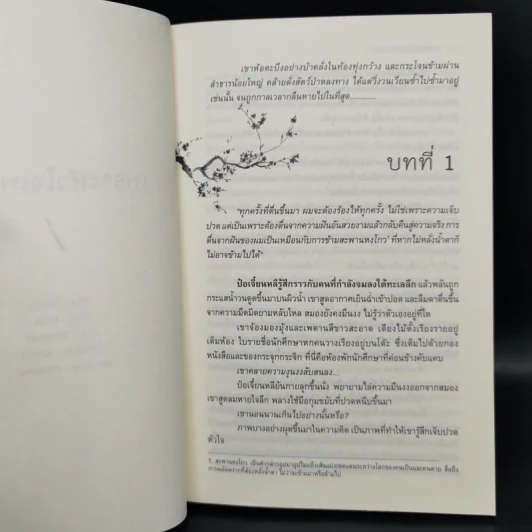 เขาห้อตะบึงอย่างบ้าคลั่งในท้องทุ่งกว้าง และกระโจนข้ามผ่าน
ลำธารน้อยใหญ่ คล้ายดั่งสัตว์ป่าหลงทาง ได้แต่วิ่งวนเวียนซ้ำไปซ้ำมาอยู่
เช่นนั้น จนถูกกาลเวลากลืนหายไปในที่สุด...........
บทที่ 1
"ทุกครั้งที่ตื่นขึ้นมา ผมจะต้องร้องไห้ทุกครั้ง ไม่ใช่เพราะความเจ็บ
ปวด แต่เป็นเพราะต้องตื่นจากความฝันอันสวยงามแล้วกลับคืนสู่ความจริง การ
ตื่นจากฝันของผมเป็นเหมือนกับการข้ามสะพานหงโกว¹ ที่หากไม่หลั่งน้ำตาก็
ไม่อาจข้ามไปได้"
ป๋อเจี้ยนหลีรู้สึกราวกับตนที่กำลังจมลงใต้ทะเลลึก แล้วพลันถูก
กระแสน้ำวนดูดขึ้นมาบนผิวน้ำ เขาสูดอากาศเย็นฉ่ำเข้าปอด และลืมตาตื่นขึ้น
จากความมืดมิดยามหลับใหล สมองยังคงมึนงง ไม่รู้ว่าตัวเองอยู่ที่ใด
เขาจ้องมองมุ้งและเพดานสีขาวสะอาด เตียงไม้ตั้งเรียงรายอยู่
เต็มห้อง ใบรายชื่อนักศึกษาหกคนวางเรียงอยู่บนโต๊ะ ซึ่งเต็มไปด้วยกอง
หนังสือและของกระจุกกระจิก ที่นี่คือห้องพักนักศึกษาที่ค่อนข้างคับแคบ
เขาคลายความงุนงงสับสนลง...
ป๋อเจี้ยนหลียันกายลุกขึ้นนั่ง พยายามไล่ความมึนงงออกจากสมอง
เขาสูดลมหายใจลึก พลางใช้มือกุมขมับที่ปวดหนึบขึ้นมา
เขานอนนานเกินไปอย่างนั้นหรือ?
ภาพบางอย่างผุดขึ้นมาในความคิด เป็นภาพที่ทำให้เขารู้สึกเจ็บปวด
หัวใจ
1. สะพานหงโกว เป็นคำกล่าวอุปมาอุปไมยถึงเส้นแบ่งเขตแดนระหว่างโลกของคนเป็นและคนตาย สื่อถึง
การพลัดพรากที่ต้องหลั่งน้ำตา ไม่ว่าจะข้ามมาหรือข้ามไป